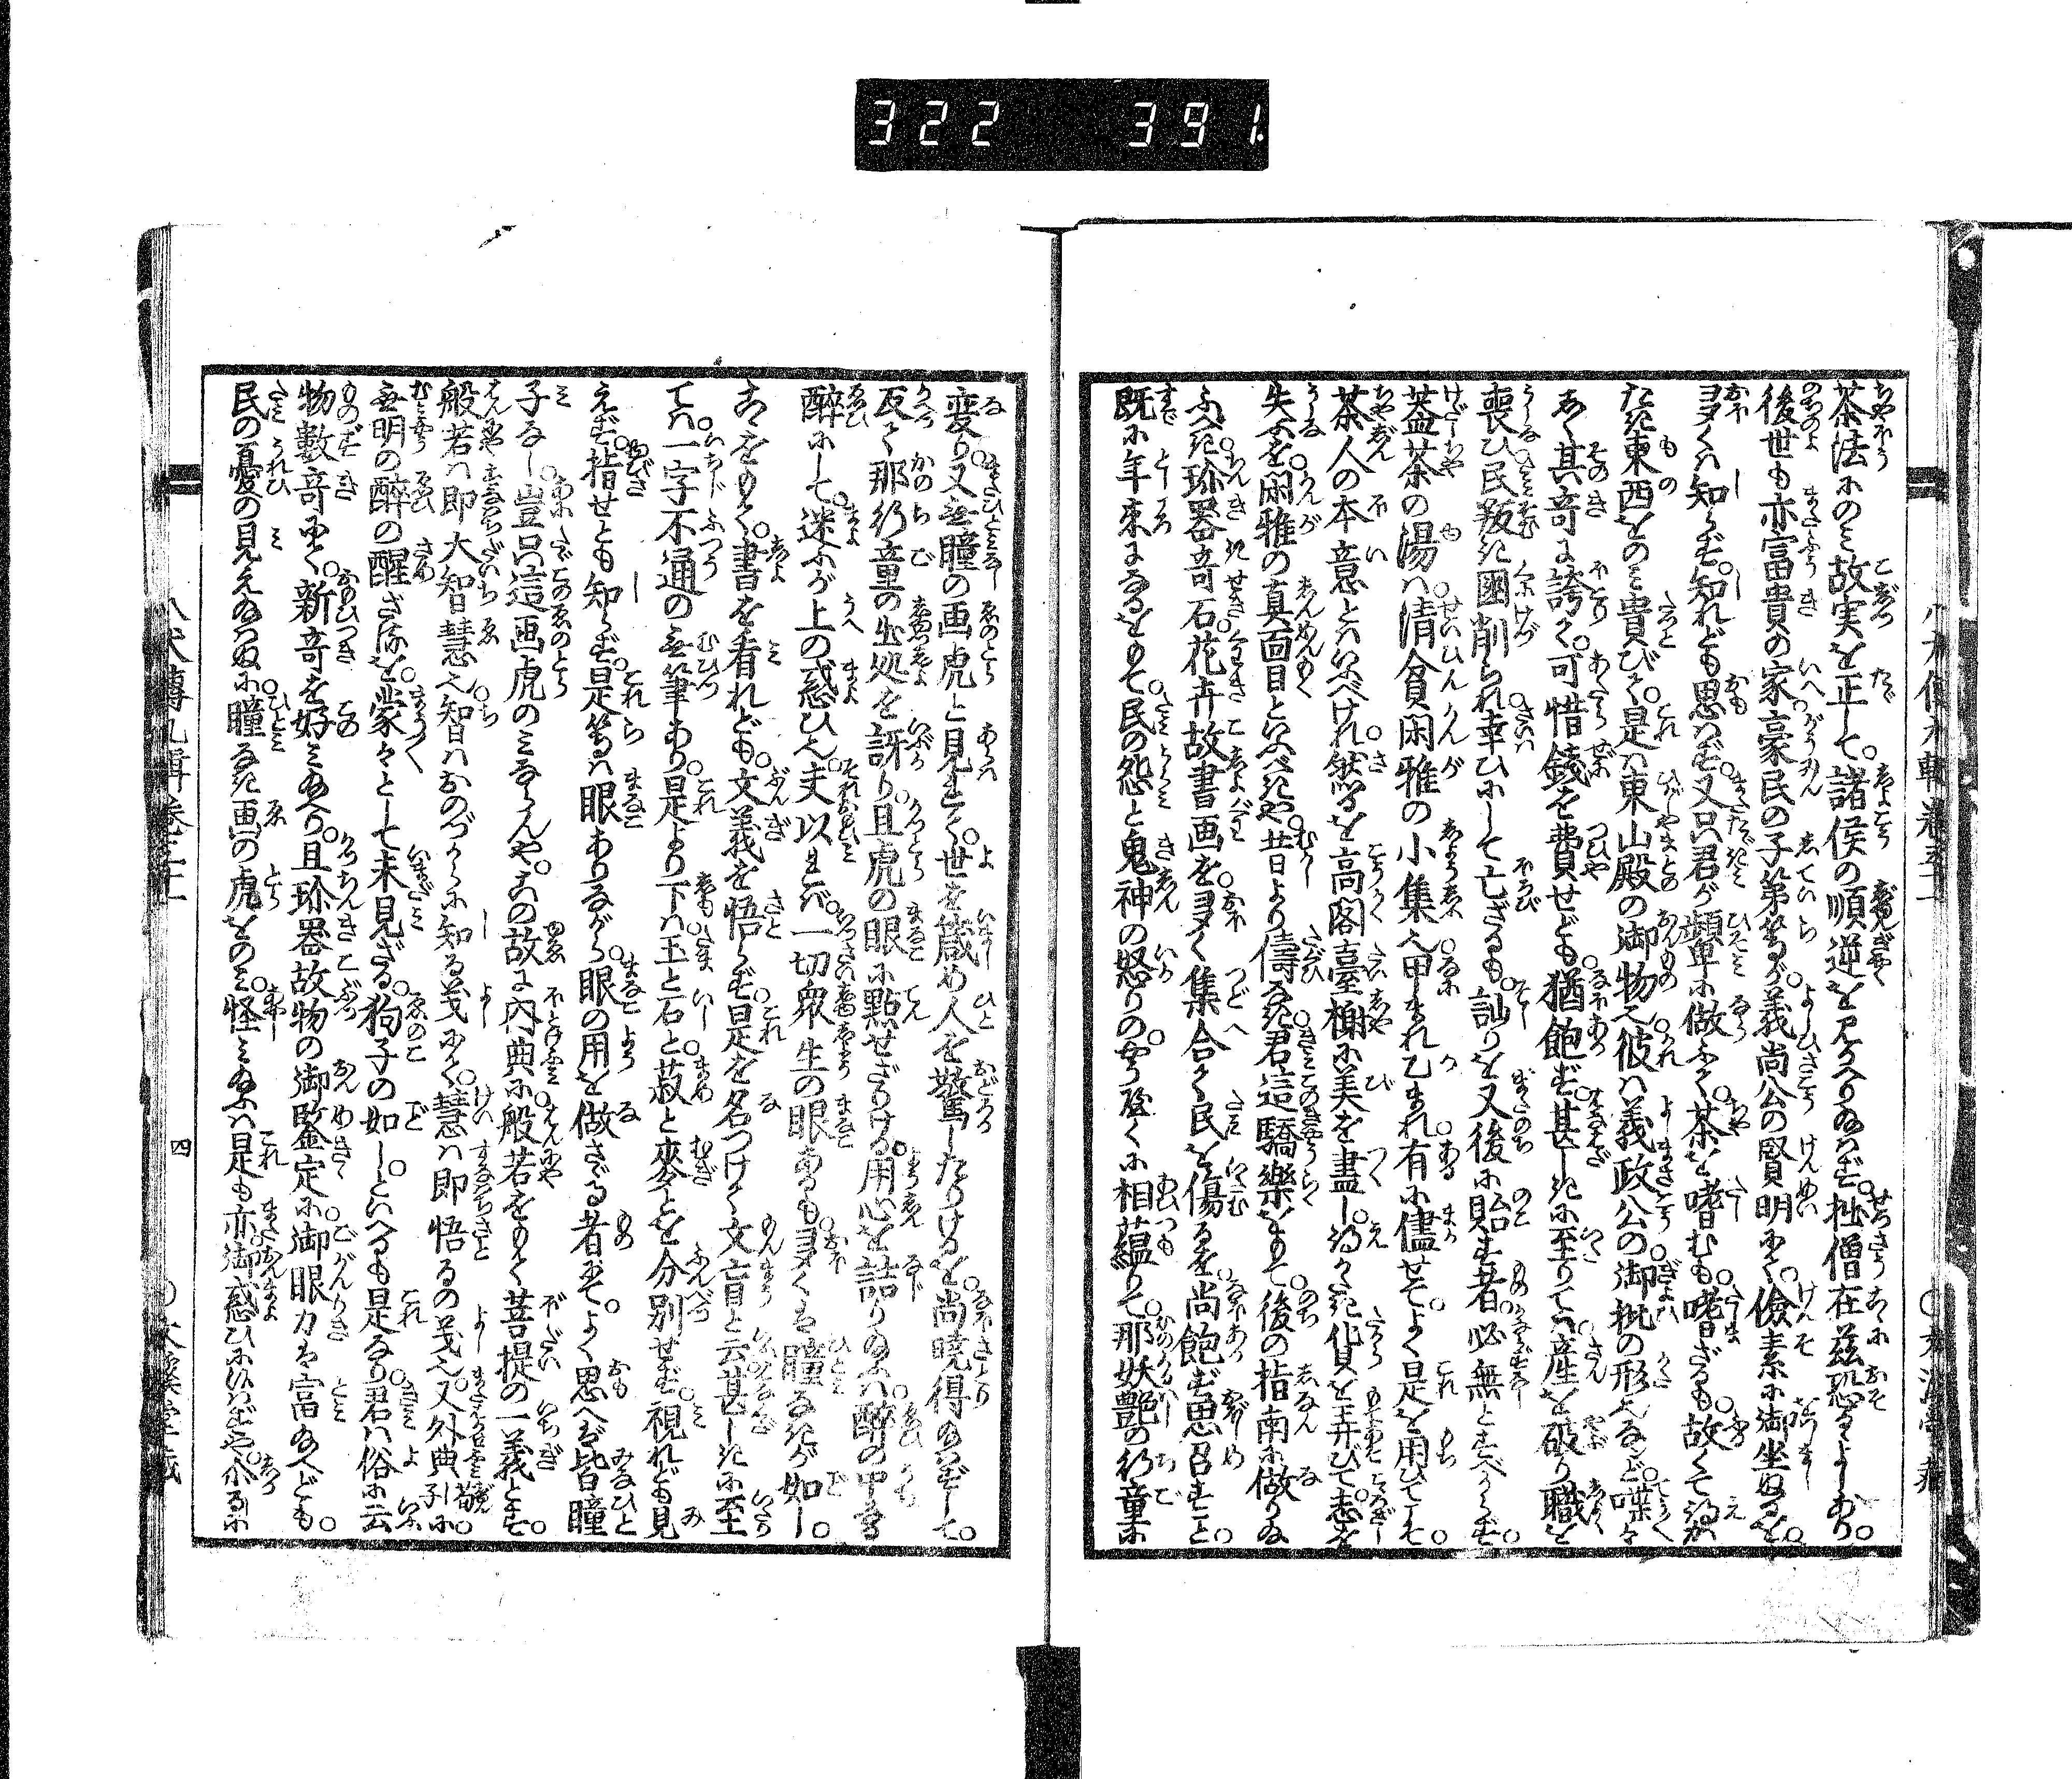 322 391
茶法にのみ故実を正して。諸侯の順逆を見かへり給はず。拙僧在茲恐るゝよしあり。
後世も亦富貴の家豪民の子弟等が。義尚公の賢明にて。倹素に御坐ぬるを。
ヨヌくは知らず。知れども思はず。又只君が顰に做ふて。茶を嗜むも嗜ざるも。故くて得が
たき東西をのみ貴びて。是は東山殿の御物也彼は義政公の御批の形也など。喋々
しく其奇に誇て。可惜錢を費せども。猶飽ず。甚しきに至りては。産を破り職を
喪ひ民叛き國削られ。幸ひにして亡ざるも。訕りを又後に貽す者。必無とすべからず。
蓋茶の湯は。清貧閑雅の小集也。甲まれ乙まれ。有に儘せて。よく是を用ひてこそ。
茶人の本意とはいふべけれ。然るを高閣臺榭に美を盡し。得がたき貨を弄びて。志を
失ふを。閑雅の真面目といふべきや。昔より儔なき。君這驕樂をもて。後の指南に做り給
ふべき。珍器奇石花卉故書画を。ヨヌく集合て民を傷るを。尚飽ず思召すこと。
既に年来になるをもて。民の怨と鬼神の怒りの。やうやくに相蘊りて。那妖艶の行童に
変り。又無瞳の画虎と見れて。世を箴め人を驚したりけるを。尚暁得給はずして。
反て那行童の出処を訝り。且虎の眼に點せざりける。用心を詰り給ふは。酔の中なる
酔にして。迷ふが上の惑ひ也。夫以れば。一切衆生の眼あるも。ヨヌくは瞳なきが如し。
こゝをもて。書を看れども。文義を悟らず。是を名つけて文盲と云。甚しきに至
ては。一字不通の無筆あり。是より下は。玉と石と。菽と麥とを分別せず。視れども見
えず。指せども知らず。是等は眼ありながら。眼の用を做さゞる者にて。よく思へば皆瞳
子なし。豈只這画虎のみならんや。この故に内典に。般若をもて菩提の一義とす。
般若は即大智慧也。智はおのづからに知る義にて。慧は即悟るの義也。又外典荀子に。
無明の酔の醒ざるを。蒙々として未見ざる。狗子の如し。といへるも是なり。君は俗に云
物數奇にて。新奇を好み給へり。且珍器故物の御鑒定に。御眼力は富給へども。
民の憂の見え給はぬに。瞳なき画の虎をのみ。怪み給ふは是も亦御惑ひに候はずや。尓るに
四